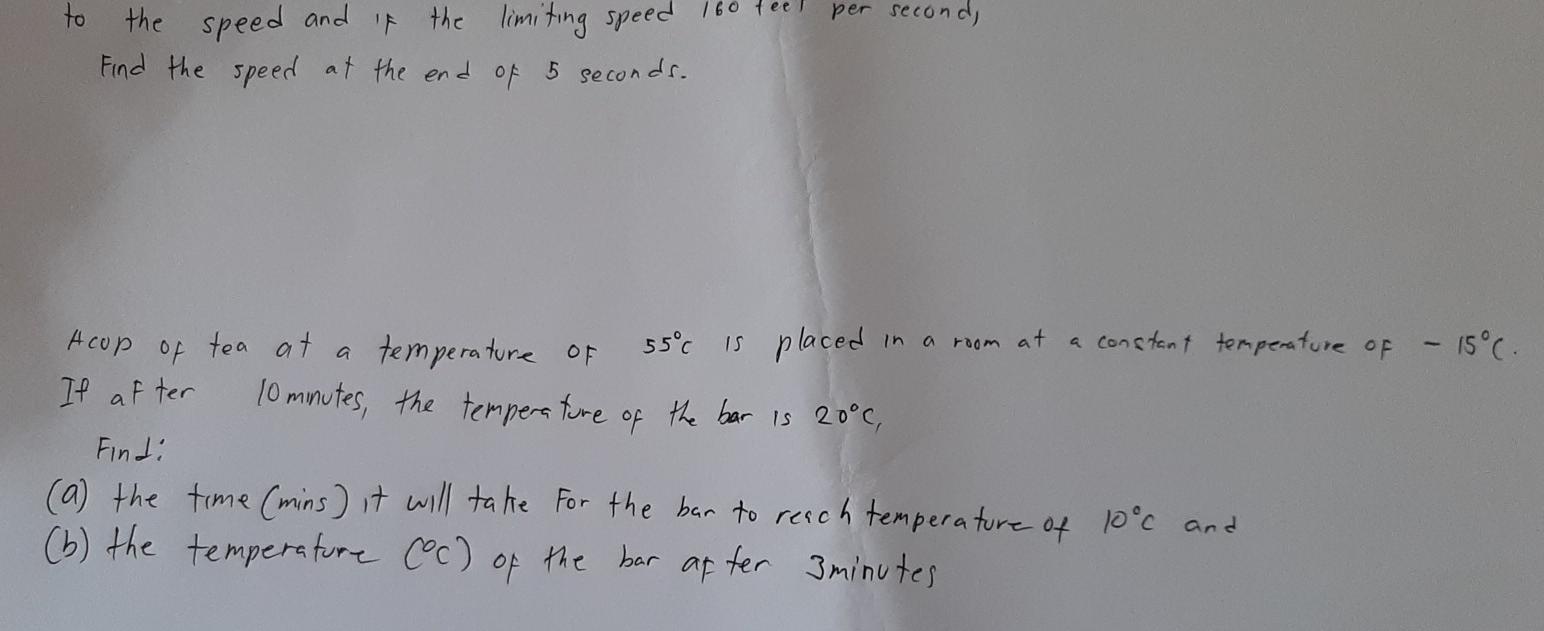 to the speed and if the limiting speed 160 feet per second,
Find the speed at the end of 5 seconds.
A cup of tea at a temperature of 55°C is placed in a room at a constant temperature of - 15°C.
If after 10 minutes, the temperature of the bar is 20°C,
Find:
(a) the time (mins) it will take for the bar to reach temperature of 10°C and
(b) the temperature (°C) of the bar after 3 minutes